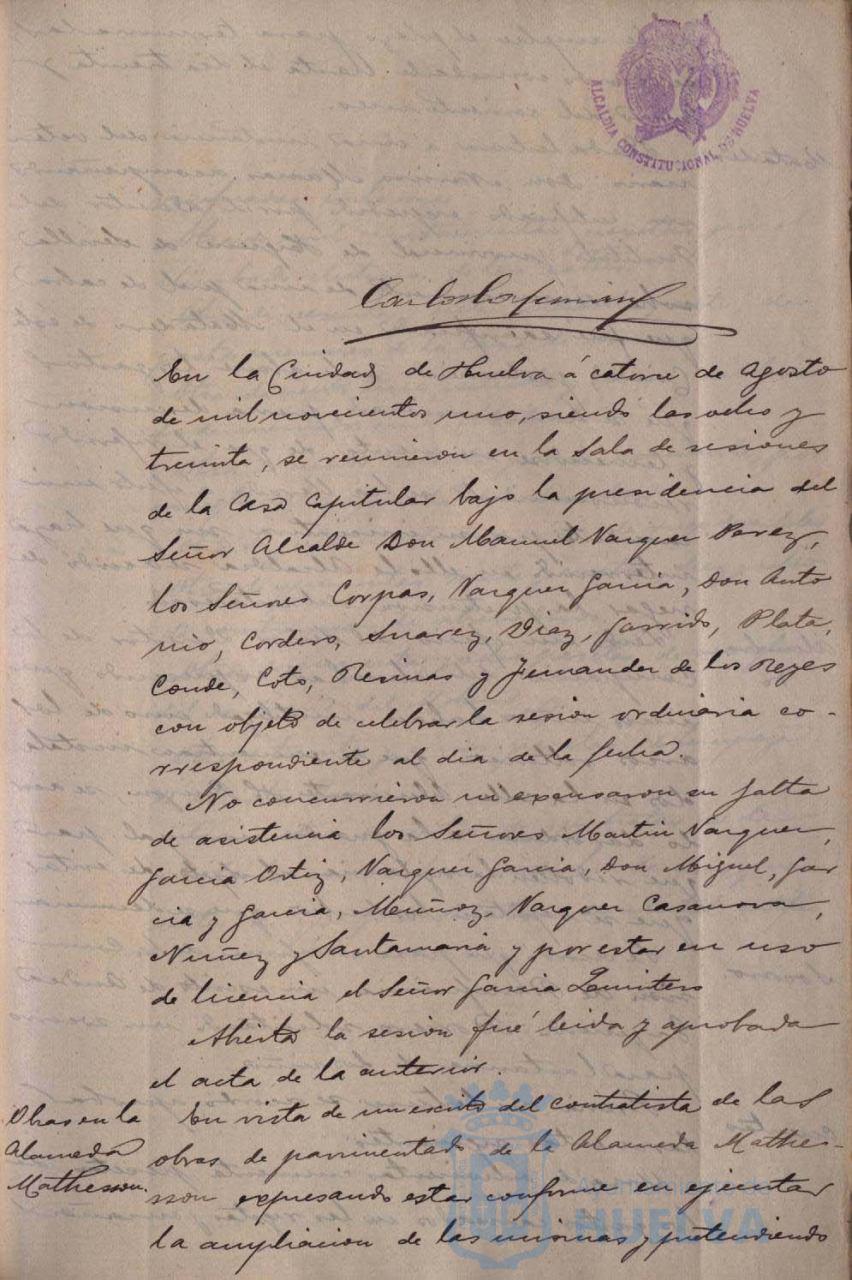 ALCALDIA CONSTITUCIONAL DE HUELVA
En la Ciudad de Huelva á catorce de Agosto
de mil novecientos uno, siendo las ocho y
treinta, se reunieron en la Sala de sesiones
de la Casa Capitular bajo la presidencia del
Señor Alcalde Don Manuel Vazquez Perez,
los Señores Corpas, Vazquez Garcia, Don Anto
nio, Cordero, Suarez, Diaz, Garrido, Plata,
Conde, Coto, Resinas y Fernandez de los Reyes
con objeto de celebrar la sesion ordinaria co-
rrespondiente al dia de la fecha.
No concurrieron ni excusaron su falta
de asistencia los Señores Martin Vazquez,
Garcia Ortiz, Vazquez Garcia, Don Miguel, Gar
cia y Garcia, Muñoz, Vazquez Casanova,
Nuñez y Santamaria y por estar en uso
de licencia el Señor Garcia Quintero
Abierta la sesion fué leida y aprobada
el acta de la anterior.
Obras en la
Alameda
Mathesson.
En vista de un escrito del contratista de las
obras de pavimentado de la Alameda Mathe-
sson expresando estar conforme en ejecutar
la ampliacion de las mismas y pretendiendo
HUELVA